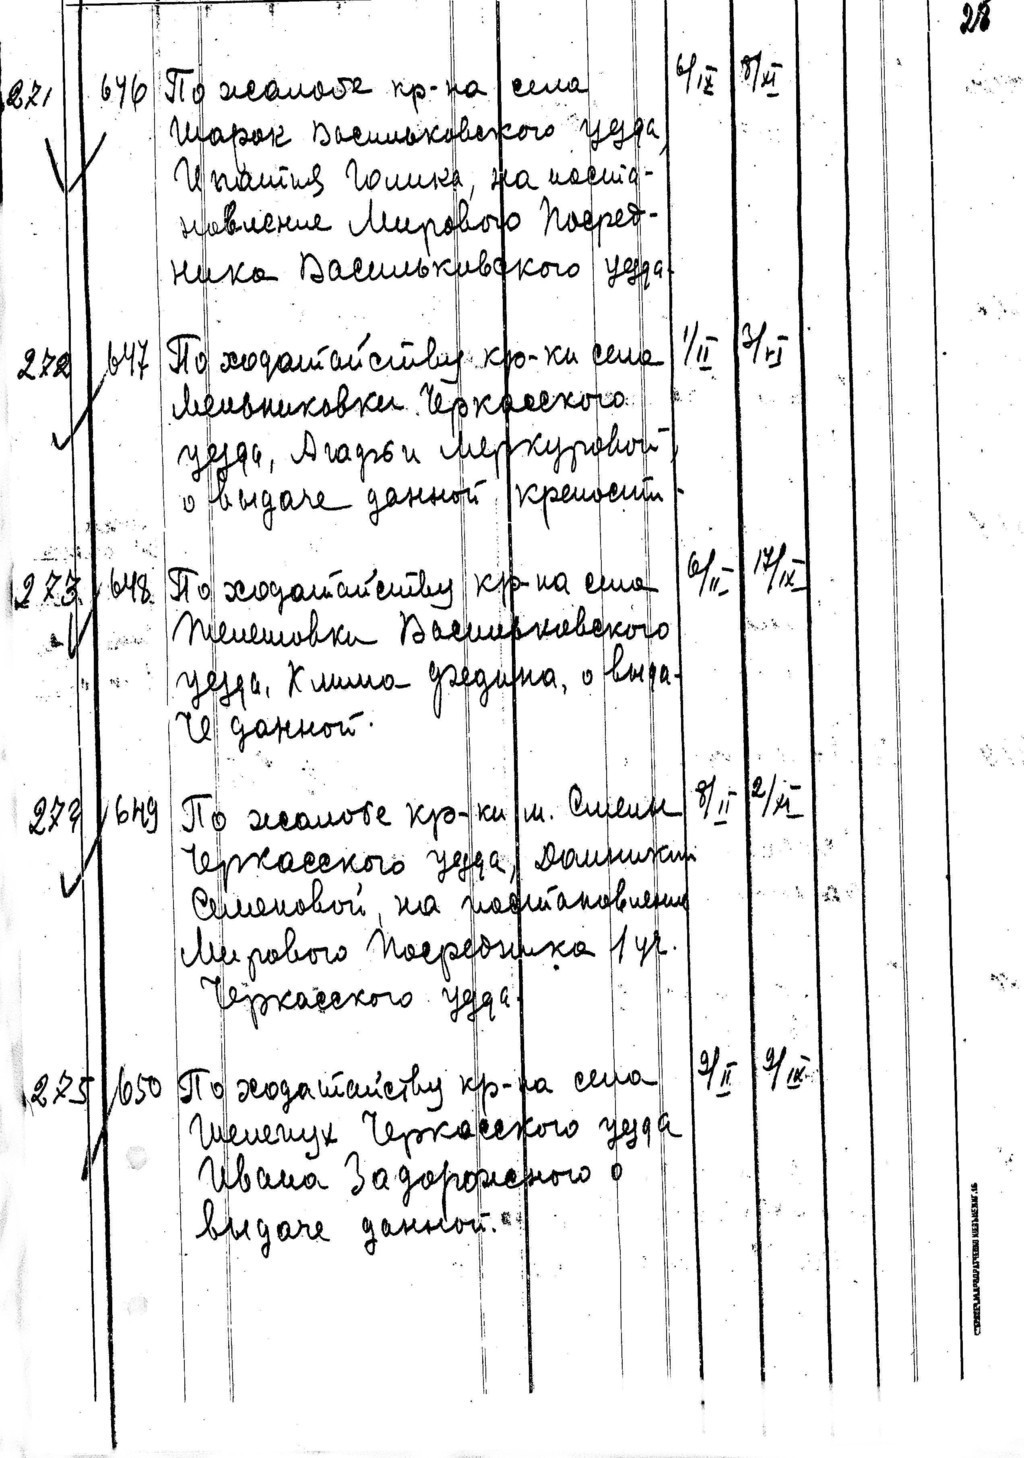 28
271 646 По жалобе кр-на села 6/IX 8/XI
Шарок Васильковского уезда,
Ипатия Голика, на поста-
новление Мирового Посред-
ника Васильковского уезда.
272 647 По ходатайству кр-ки села 1/II 3/VI
Мельниковки Черкасского
уезда, Агафьи Меркуровой,
о выдаче данной крепости.
273 648 По ходатайству кр-на села 6/II 17/IX
Телешовки Васильковского
уезда, Клима Федина, о выда-
че данной.
274 649 По жалобе кр-ки м. Смелы 8/II 2/XI
Черкасского уезда, Домникии
Семеновой, на постановление
Мирового Посредника 1 уч.
Черкасского уезда.
275 650 По ходатайству кр-на села 9/II 9/IX
Шелепух Черкасского уезда
Ивана Задорожного о
выдаче данной.